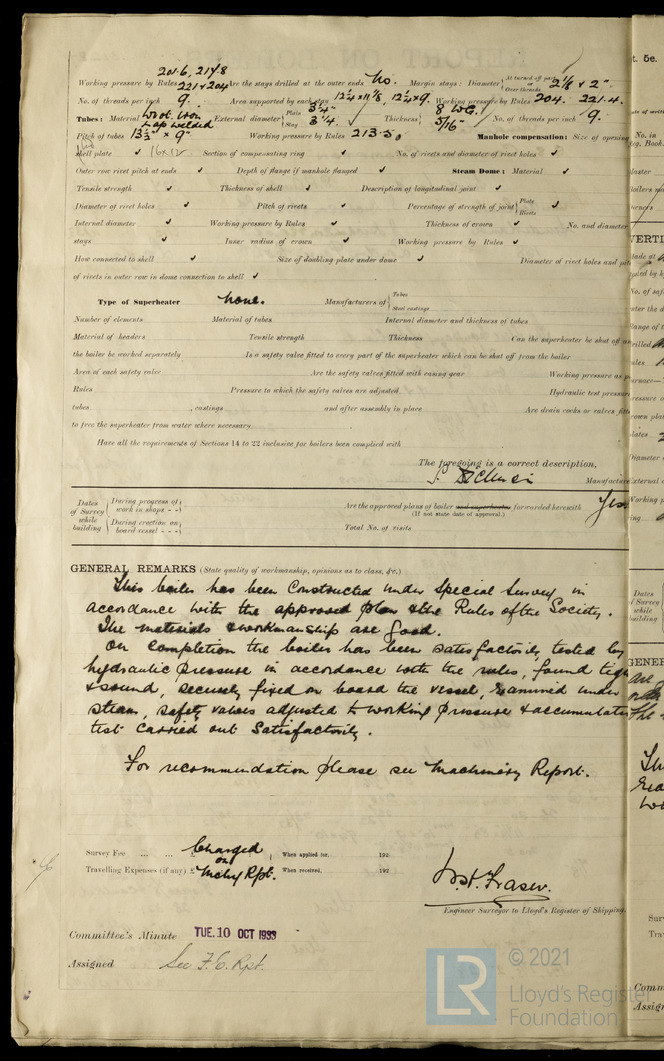 201.6, 217.8
Working pressure by Rules 221 & 204 Are the stays drilled at the outer ends No. Margin stays: Diameter { At turned off part, Over threads 2 1/8 & 2"
No. of threads per inch 9. Area supported by each stay 12 1/4 x 11 1/8, 12 1/4 x 9. Working pressure by Rules 204. 221.4.
Tubes: Material Wrot. Iron Lap welded External diameter { Plain 3 1/4" Stay 3 1/4" Thickness { 8 W.G. 5/16" No. of threads per inch 9.
Pitch of tubes x 9" Working pressure by Rules 213.5 Manhole compensation: Size of opening
shell plate 16x12 Section of compensating ring No. of rivets and diameter of rivet holes
Outer row rivet pitch at ends Depth of flange if manhole flanged Steam Dome: Material
Tensile strength Thickness of shell Description of longitudinal joint
Diameter of rivet holes Pitch of rivets Percentage of strength of joint { Plate Rivets
Internal diameter Working pressure by Rules Thickness of crown No. and diameter
stays Inner radius of crown Working pressure by Rules
How connected to shell Size of doubling plate under dome Diameter of rivet holes and
of rivets in outer row in dome connection to shell
Type of Superheater None. Manufacturers of { Tubes Steel castings
Number of elements Material of tubes Internal diameter and thickness of tubes
Material of headers Tensile strength Thickness Can the superheater be shut off
the boiler be worked separately Is a safety valve fitted to every part of the superheater which can be shut off from the boiler
Area of each safety valve Are the safety valves fitted with easing gear Working pressure as
Rules Pressure to which the safety valves are adjusted Hydraulic test pressure
tubes , castings and after assembly in place Are drain cocks or valves
to free the superheater from water where necessary
Have all the requirements of Sections 14 to 22 inclusive for boilers been complied with
The foregoing is a correct description,
Manufacture
Dates of Survey while building { During progress of work in shops - - { During erection on board vessel - - -
Are the approved plans of boiler and superheater forwarded herewith Yes
(If not state date of approval.)
Total No. of visits
GENERAL REMARKS (State quality of workmanship, opinions as to class, &c.)
This boiler has been Constructed under Special Survey in
accordance with the approved plan & the Rules of the Society.
The materials & workmanship are Good.
On completion the boiler has been satisfactorily tested by
hydraulic pressure in accordance with the rules, found
& sound, securely fixed on board the vessel, Examined under
steam, safety valves adjusted to working pressure &
test carried out Satisfactorily.
For recommendation please see Machinery Report.
Survey Fee ... ... £ Charged When applied for, 192
on
Travelling Expenses (if any) £ Mchy Rpt. When received, 192
W.H. Fraser.
Engineer Surveyor to Lloyd's Register of Shipping.
Committee's Minute TUE. 10 OCT 1933
Assigned See F.E. Rpt.
LR © 2021
Lloyd's Register
Foundation